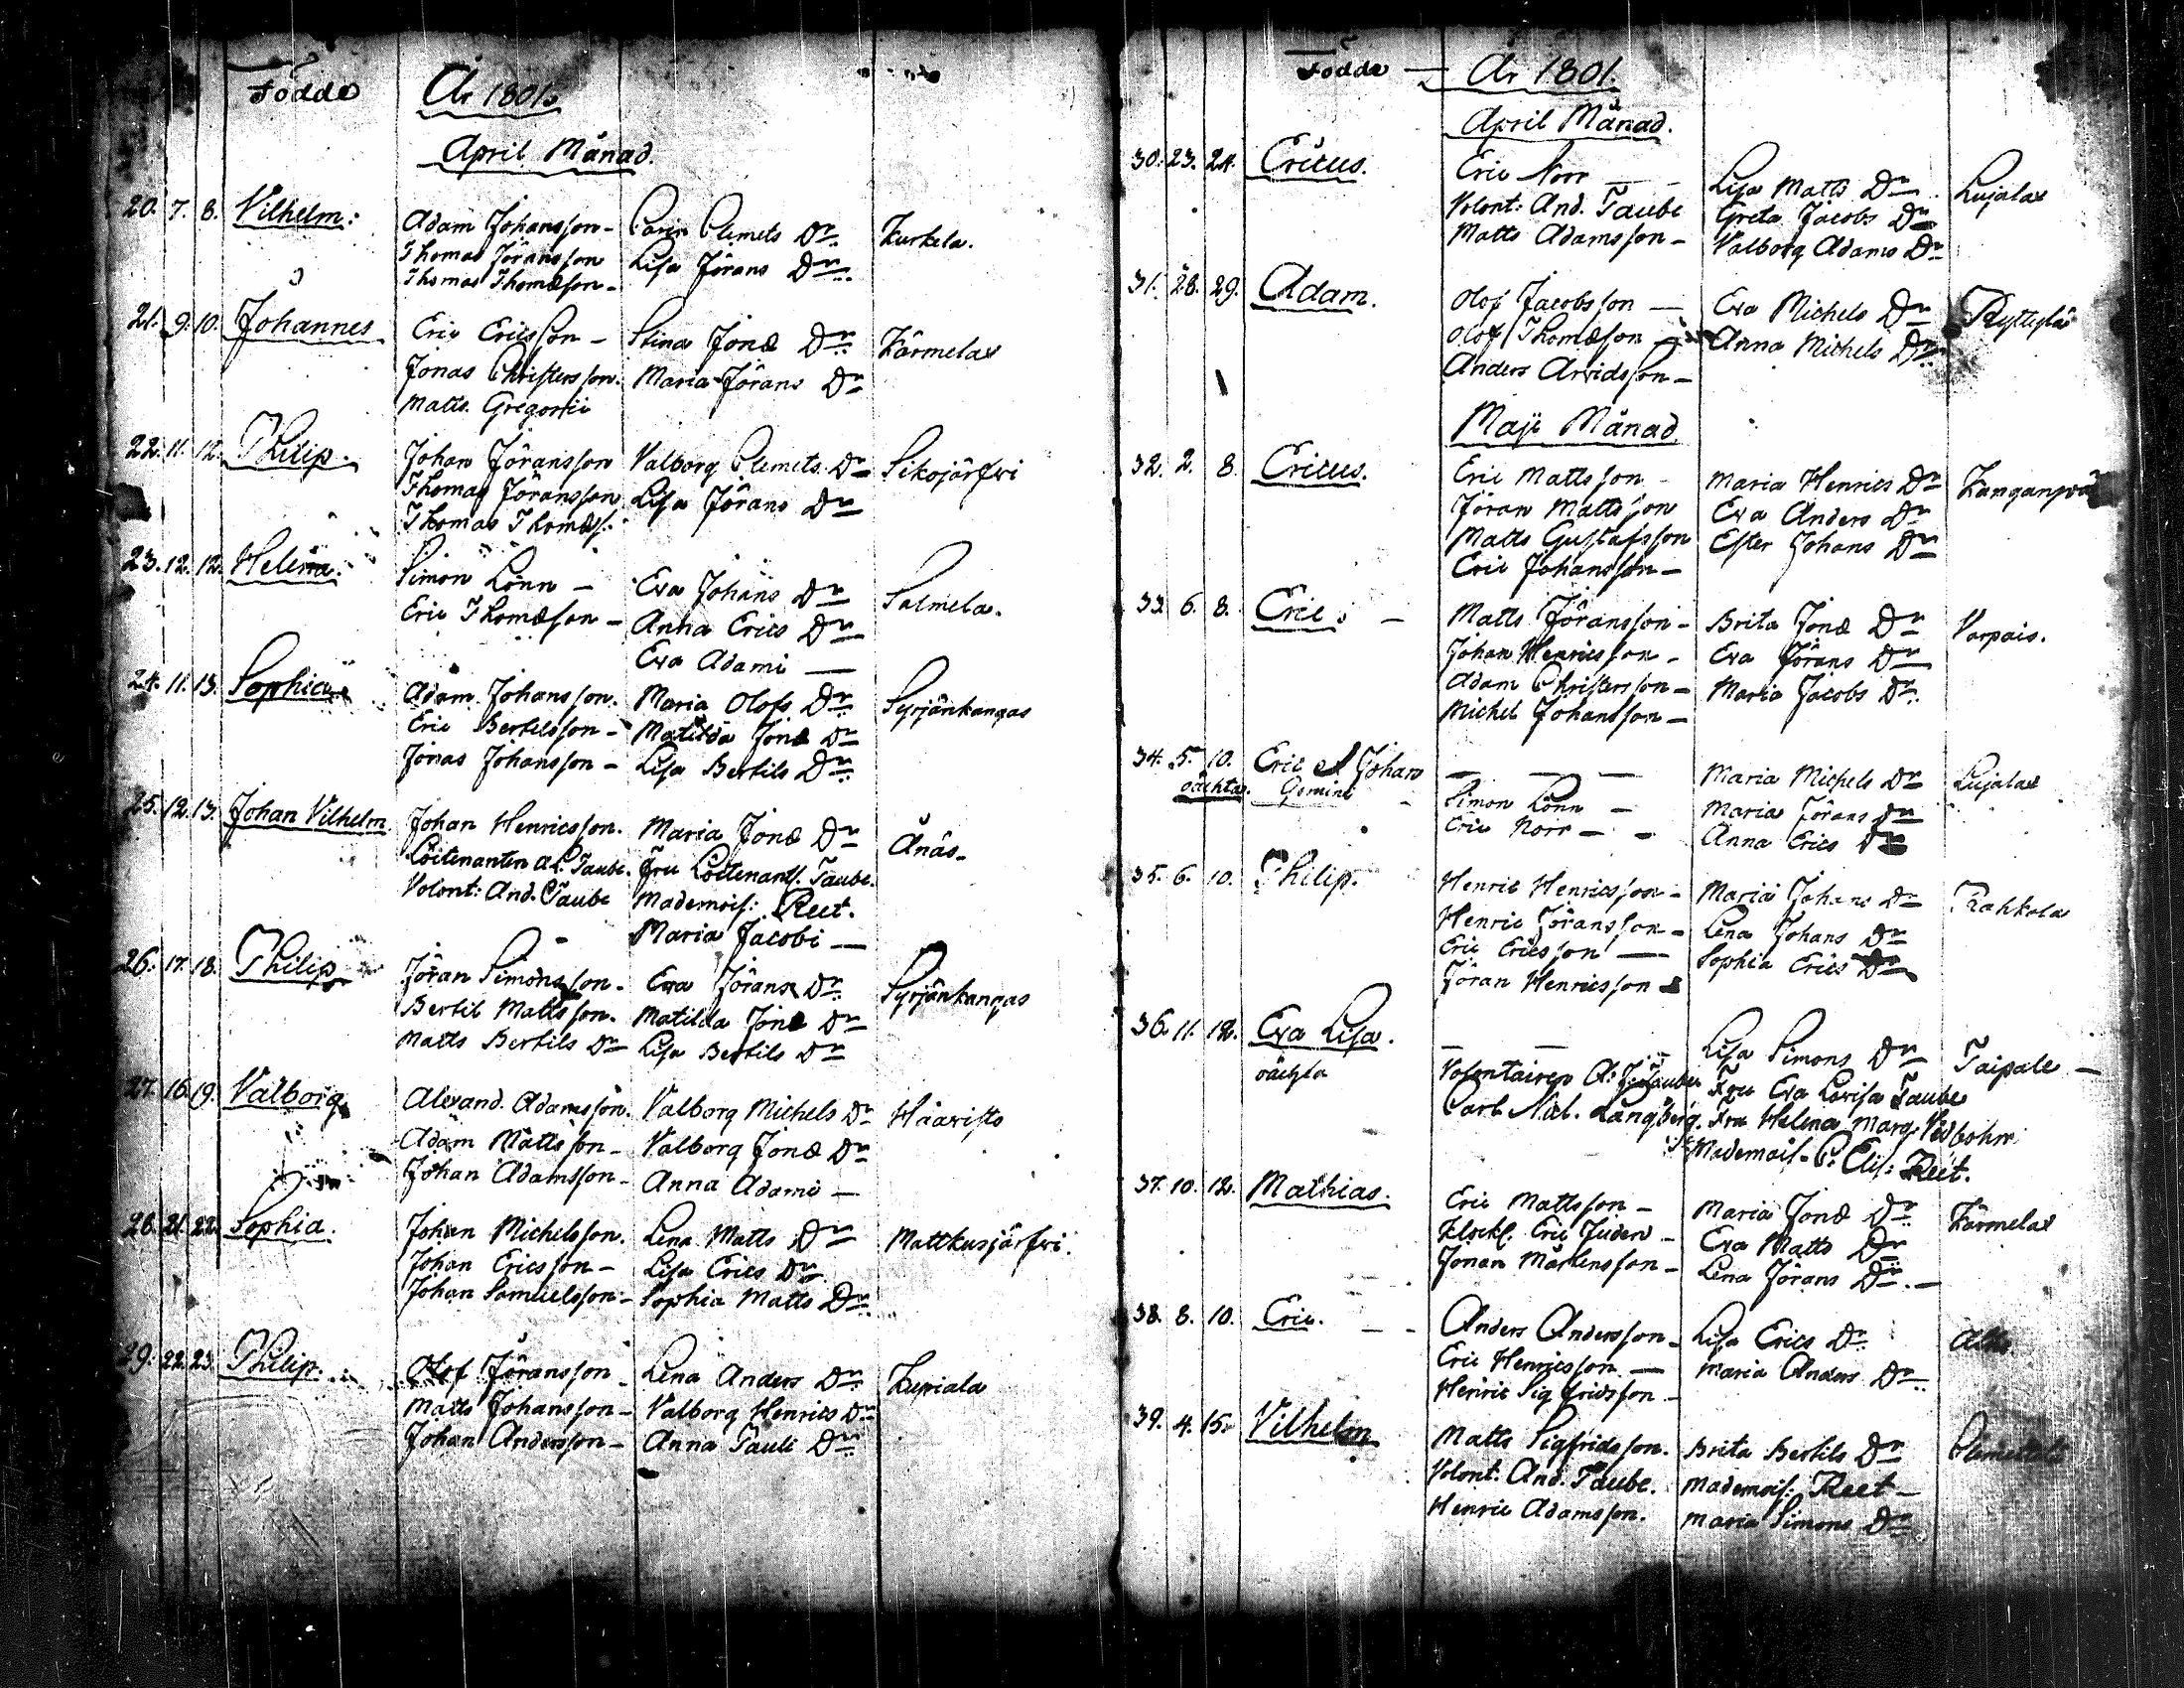 Födde Åhr 1801.
April Månad.
20. 7. 8. Vilhelm: Adam Johansson - Carin Clemets Dr Kurkela.
Thomas Jöransson Lisa Jörans Dr
Thomas Thomæson -
21. 9. 10. Johannes Eric Ericsson - Stina Jonæ Dr Kärmelax
Jonas Christersson. Maria Jörans Dr
Matts. Gregorii
22. 11. 12. Philip. Johan Jöransson Valborg Clemets Dr Sikojärfvi
Thomas Jöransson Lisa Jörans Dr
Thomas Thomæs:
23. 12. 12. Helena. Simon Lönn - Eva Johans Dr Salmela.
Eric Thomæson - Anna Erics Dr
Eva Adami —
24. 11. 13. Sophia Adam Johansson. Maria Olofs Dr Syrjänkangas
Eric Bertilsson - Matilda Jonæ Dr
Jonas Johansson - Lisa Bertils Dr
25. 12. 13. Johan Vilhelm Johan Henricsson. Maria Jonæ Dr Ånäs-
Löitenanten A. L. Taube. Fru Löitenants. Taube.
Volont: And. Taube Mademois: Reet.
Maria Jacobi —
26. 17. 18. Philip Jöran Simonsson. Eva Jörans Dr Syrjänkangas
Bertil Mattsson. Matilda Jonæ Dr
Matts Bertils Dr Lisa Bertils Dr
27. 16. 19. Valborg Alexand. Adamsson. Valborg Michels Dr Hääristo
Adam Mattsson - Valborg Jonæ Dr
Johan Adamsson - Anna Adami —
28. 21. 22. Sophia. Johan Michelsson. Lena Matts Dr Mattkusjärfvi.
Johan Ericsson - Lisa Erics Dr
Johan Samuelsson - Sophia Matts Dr
29. 22. 23. Philip. Olof Jöransson Lena Anders Dr Kupiala
Matts Johansson - Valborg Henrics Dr
Johan Andersson - Anna Pauli Dr
Födde — Åhr 1801.
April Månad.
30. 23. 24. Ericus. Eric Norr Lisa Matts Dr Lujalax
Volont: And. Taube Greta Jacobs Dr
Matts Adamsson - Valborg Adams Dr
31. 28. 29. Adam. Olof Jacobsson — Eva Michels Dr Ryttylä
Olof Thomæson Anna Michels Dr
Anders Arvidsson -
Maji Månad
32. 2. 8. Ericus. Eric Mattsson - Maria Henrics Dr
Jöran Mattsson Eva Anders Dr
Matts Gustafsson Ester Johans Dr
Eric Johansson -
33. 6. 8. Eric. - Matts Jöransson - Brita Jonæ Dr Varpais.
Johan Henricsson - Eva Jörans Dr
Adam Christersson - Maria Jacobs Dr.
Michel Johansson -
34. 5. 10. Eric & Johan — — — Maria Michels Dr Lujalax
oächta. Gemini - Simon Lönn — Maria Jörans Dr
Eric Norr — - Anna Erics Dr
35. 6. 10. Philip. Henric Henricsson - Maria Johans Dr Rahkola
Henric Jöransson - Lena Johans Dr
Eric Ericsson — Sophia Erics Dr
Jöran Henricsson
36. 11. 12. Eva Lisa. — — Lisa Simons Dr Taipale —
oächta Volontairen A: Taube Fru Eva Lovisa Taube
Carl Nicl. Långberg. Fru Helena Marg. Vedbohm
Mademois- C. Elis: Reet.
37. 10. 12. Mathias. Eric Mattsson - Maria Jonæ Dr Kärmelax
Klock. Eric Juden - Eva Matts Dr
Jonan Mårtensson - Lena Jörans Dr. —
38. 8. 10. Eric. — - Anders Andersson - Lisa Erics Dr
Eric Henricsson — Maria Anders Dr
Henric Sigfridsson -
39. 4. 15. Vilhelm Matts Sigfridsson. Brita Bertils Dr
Volont: And. Taube. Mademois: Reet —
Henric Adamsson. Maria Simons Dr